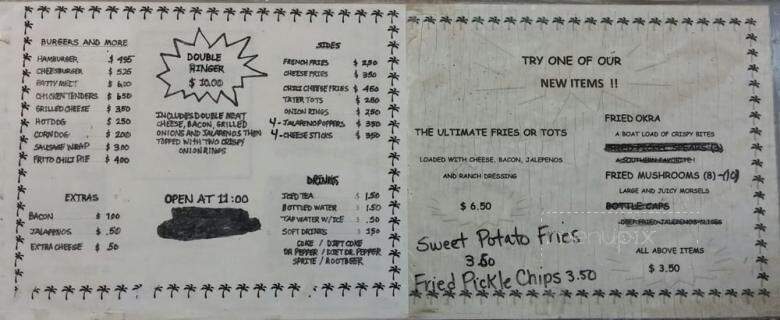 BURGERS AND MORE
HAMBURGER $ 4.95
CHEESEBURGER $ 5.25
PATTY MELT $ 6.00
CHICKEN TENDERS $ 6.50
GRILLED CHEESE $ 3.50
HOTDOG $ 2.50
CORN DOG $ 2.00
SAUSAGE WRAP $ 3.00
FRITO CHILI PIE $ 4.00
EXTRAS
BACON $ 1.00
JALAPENOS $ .50
EXTRA CHEESE $ .50
DOUBLE
RINGER
$ 10.00
INCLUDES DOUBLE MEAT
CHEESE, BACON, GRILLED
ONIONS AND JALAPENOS THEN
TOPPED WITH TWO CRISPY
ONION RINGS
OPEN AT 11:00
SIDES
FRENCH FRIES $ 2.50
CHEESE FRIES $ 3.50
CHILI CHEESE FRIES $ 4.50
TATER TOTS $ 2.50
ONION RINGS $ 2.50
4 - JALAPENO POPPERS $ 3.50
4 - CHEESE STICKS $ 3.50
DRINKS
ICED TEA $ 1.50
BOTTLED WATER $ 1.50
TAP WATER W/ICE $ .50
SOFT DRINKS $ 1.50
COKE / DIET COKE
DR PEPPER / DIET DR. PEPPER
SPRITE / ROOTBEER
TRY ONE OF OUR
NEW ITEMS !!
THE ULTIMATE FRIES OR TOTS
LOADED WITH CHEESE, BACON, JALEPENOS
AND RANCH DRESSING
$ 6.50
Sweet Potato Fries
3.50
Fried Pickle Chips 3.50
FRIED OKRA
A BOAT LOAD OF CRISPY BITES
A SOUTHERN FAVORITE !
FRIED MUSHROOMS (8) -(10)
LARGE AND JUICY MORSELS
BOTTLE CAPS
DEEP FRIED JALEPENOS SLICES
ALL ABOVE ITEMS
$ 3.50